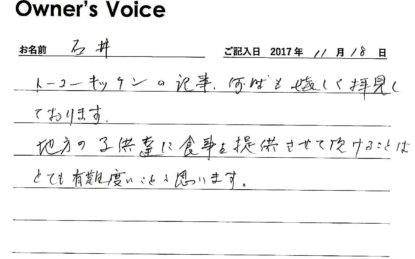 Owner's Voice
お名前 石井 ご記入日 2017年 11月 18日
トーコーキッチンの記事、何時も嬉しく拝見し
ております。
地方の子供達に食事を提供させて頂けることは
とても有難度いことと思います。